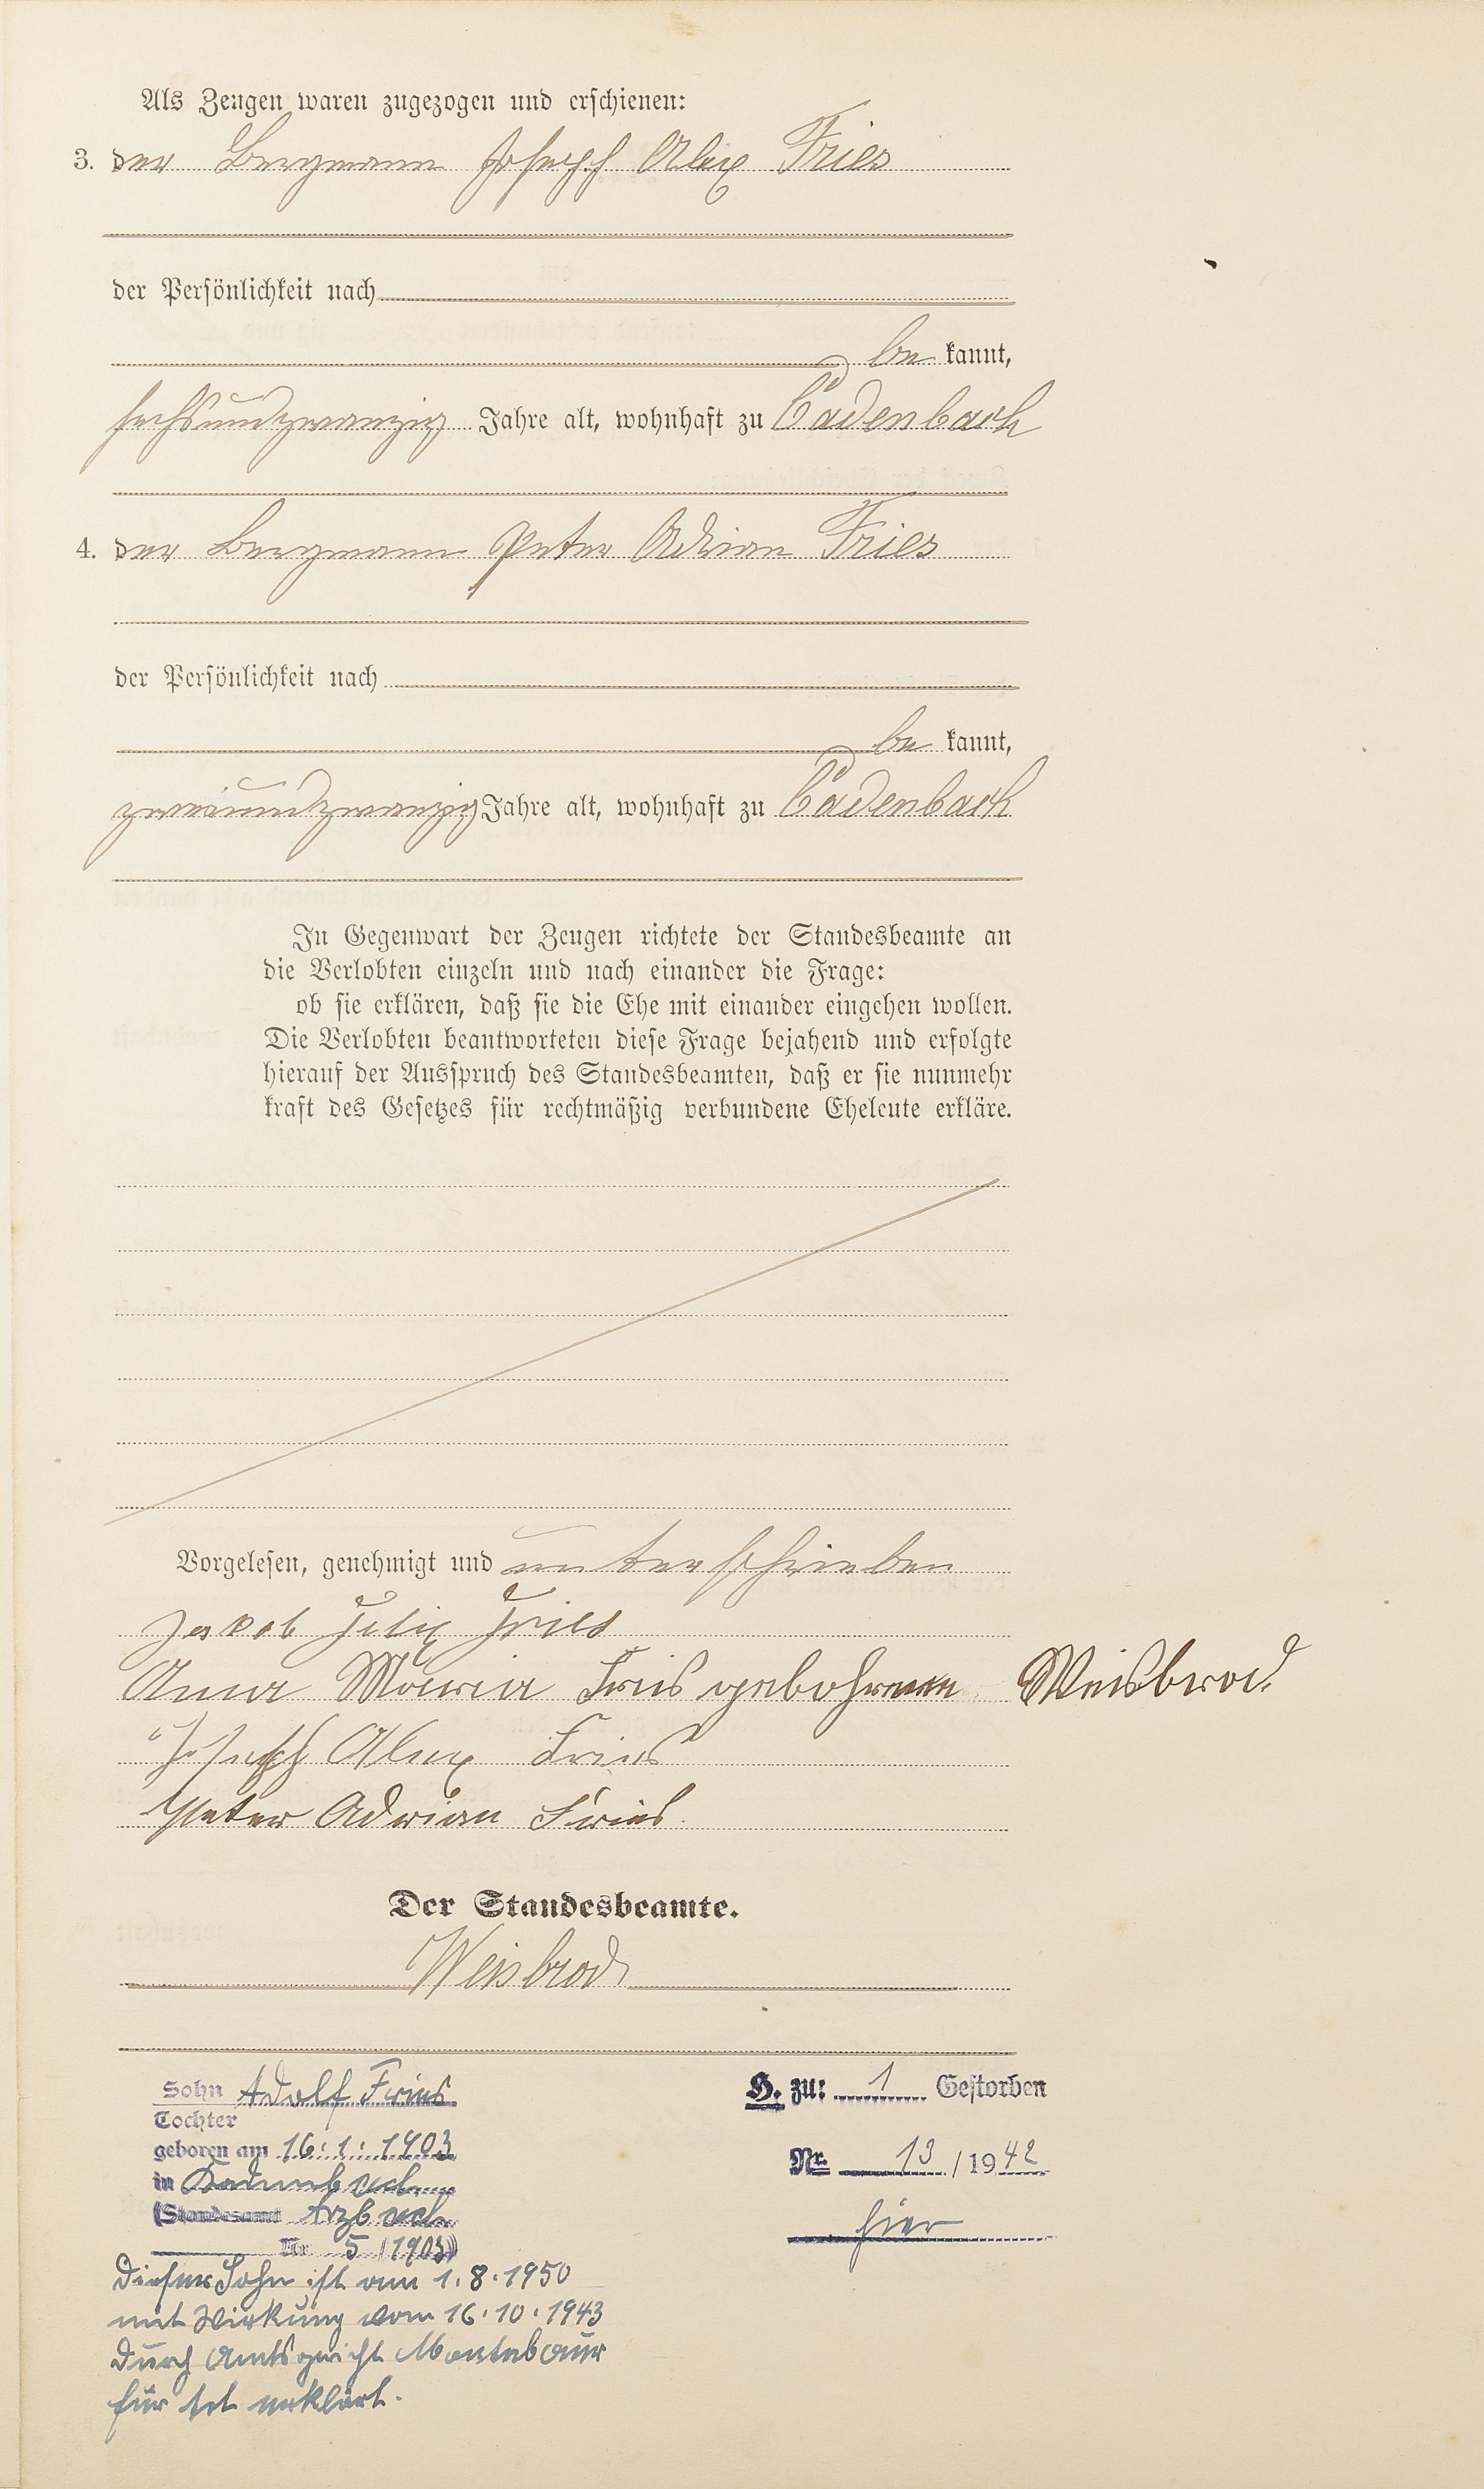 Als Zeugen waren zugezogen und erschienen:
3. der Bergmann Joseph Alex Fries
der Persönlichkeit nach
be kannt,
sechsundzwanzig Jahre alt, wohnhaft zu Cadenbach
4. der Bergmann Peter Adrian Fries
der Persönlichkeit nach
be kannt,
zweiundzwanzig Jahre alt, wohnhaft zu Cadenbach
In Gegenwart der Zeugen richtete der Standesbeamte an
die Verlobten einzeln und nach einander die Frage:
ob sie erklären, daß sie die Ehe mit einander eingehen wollen.
Die Verlobten beantworteten diese Frage bejahend und erfolgte
hierauf der Ausspruch des Standesbeamten, daß er sie nunmehr
kraft des Gesetzes für rechtmäßig verbundene Eheleute erkläre.
Vorgelesen, genehmigt und unterschrieben
Jakob Felix Fries
Anna Maria Fries gebohrene Weisbrod.
Joseph Alex Fries
Peter Adrian Fries.
Der Standesbeamte.
Weisbrod
Sohn Adolf Fries
Tochter
geboren am 16.1.1903
in Kadenbach
(Standesamt Arzbach
Nr. 5/1903)
Dieser Sohn ist am 1.8.1950
mit Wirkung vom 16.10.1943
durch Amtsgericht Montabaur
für tot erklärt.
H. zu: 1 Gestorben
Nr. 13/1942
hier